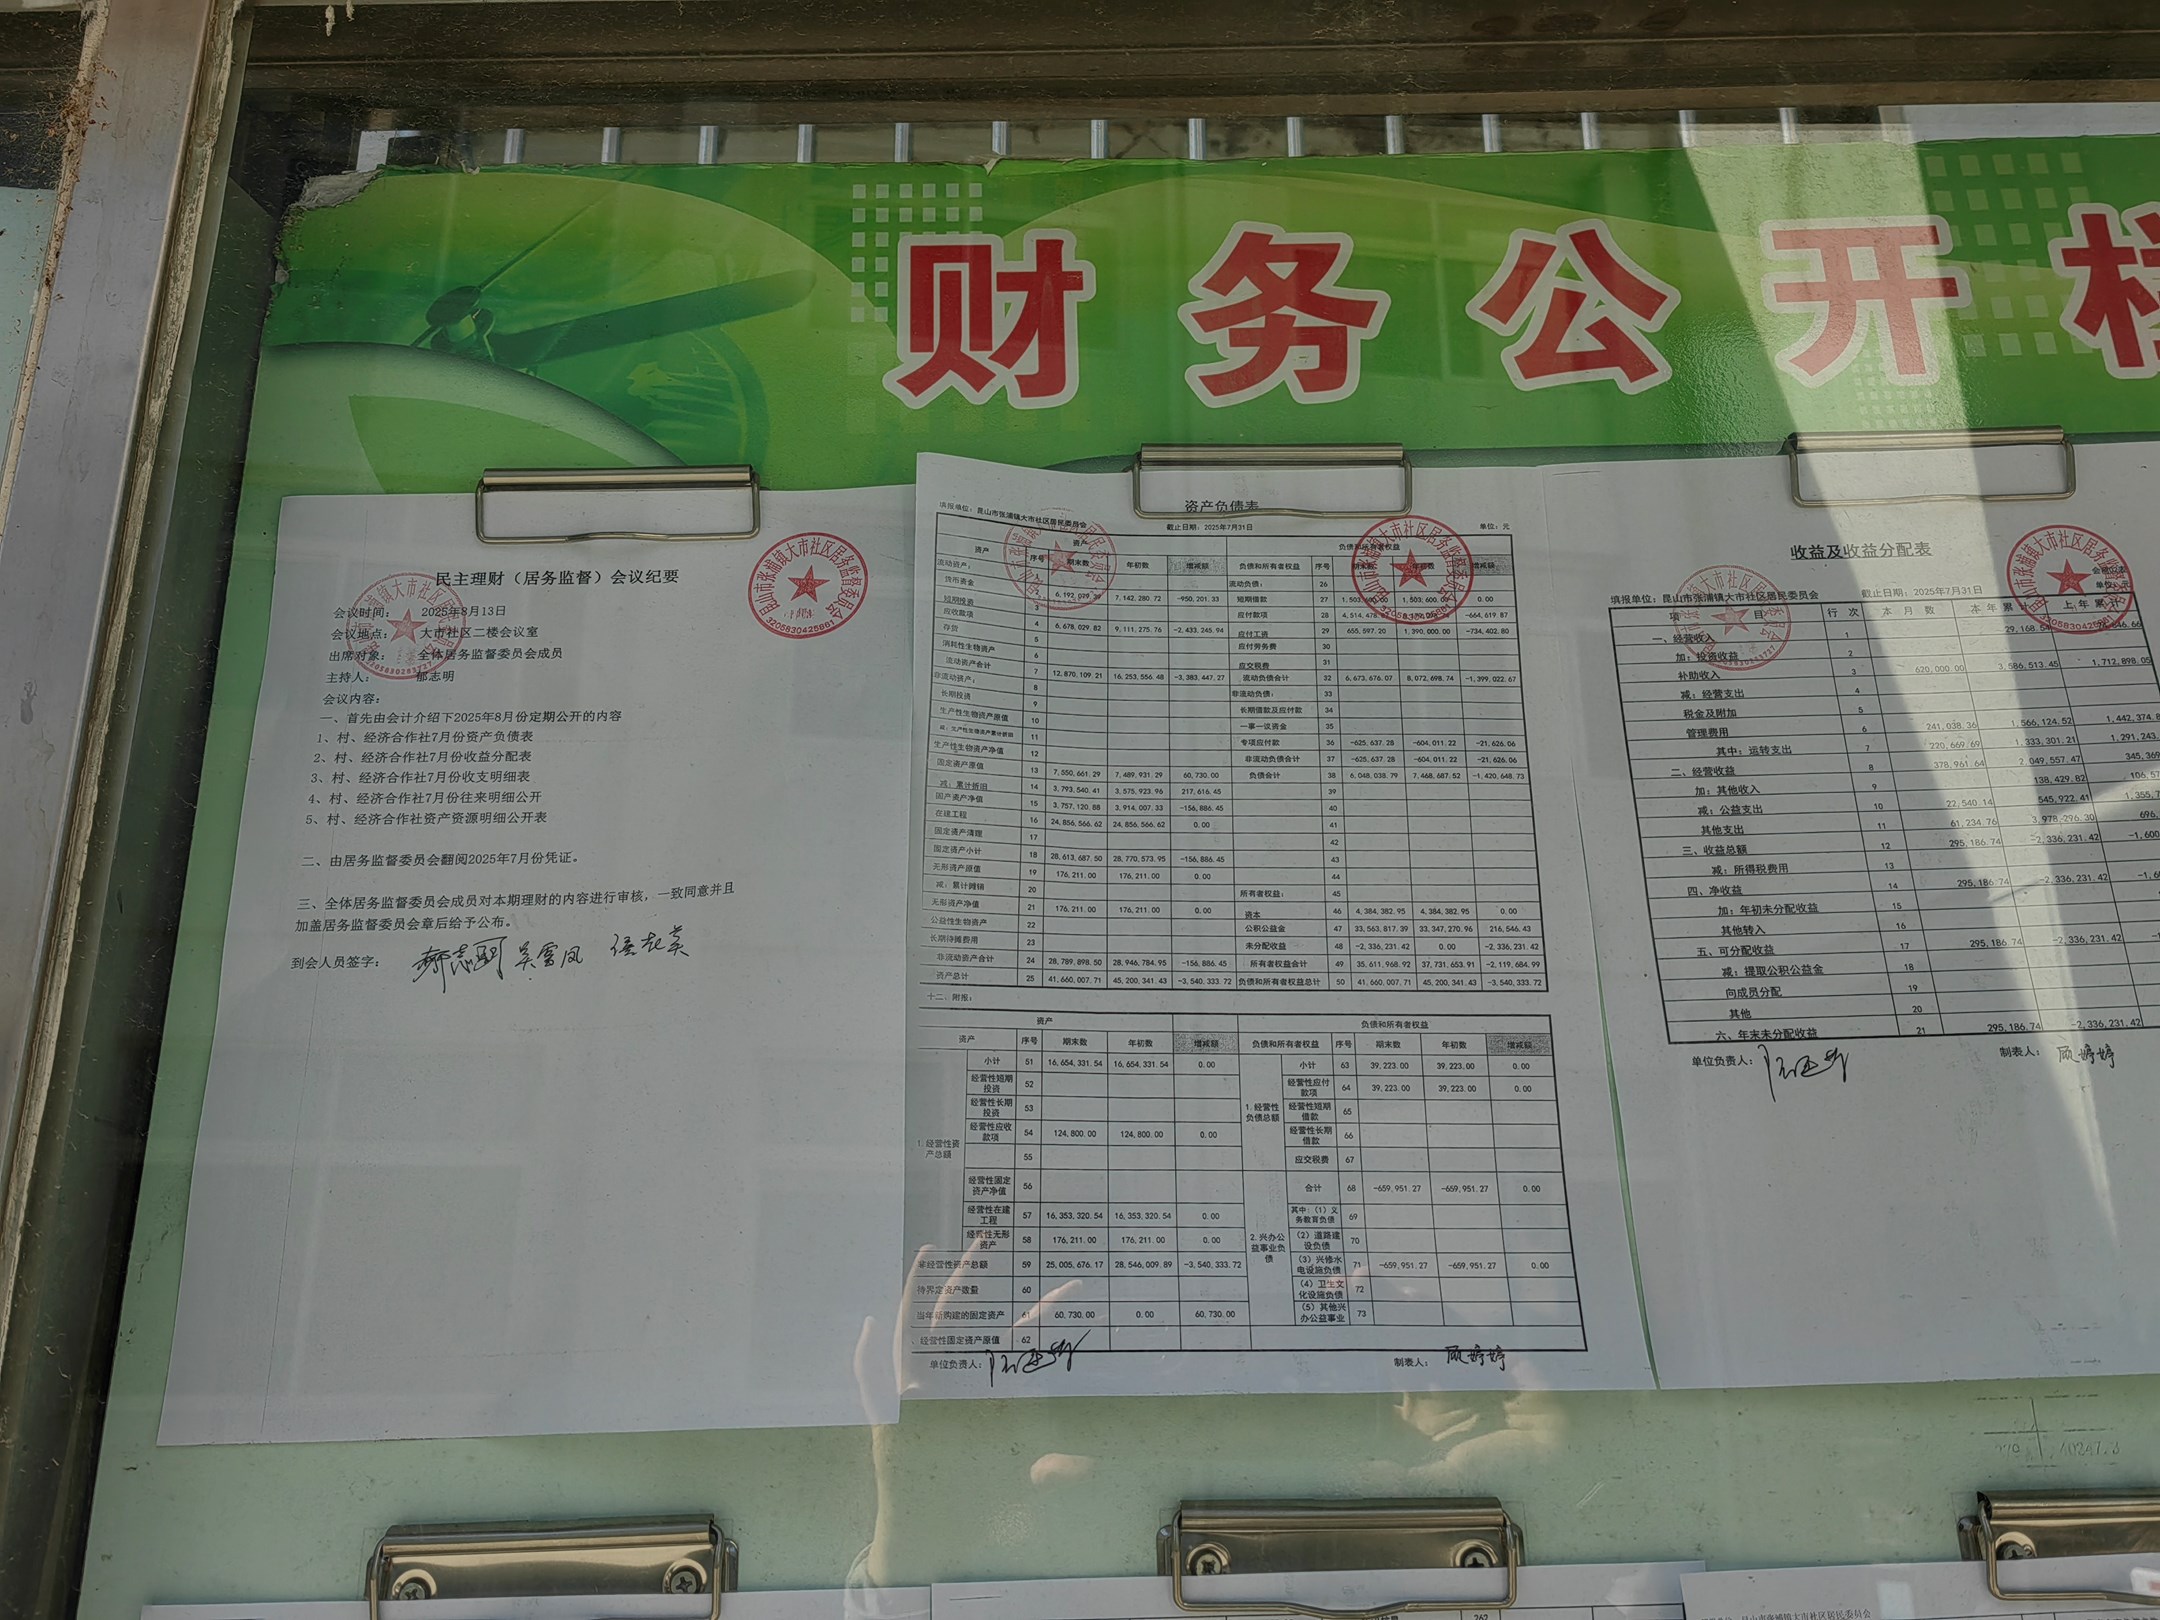 财务公开栏
民主理财（居务监督）会议纪要
会议时间： 2025年8月13日
会议地点： 大市社区二楼会议室
出席对象： 全体居务监督委员会成员
主持人： 郁志明
会议内容：
一、首先由会计介绍下2025年8月份定期公开的内容
1、村、经济合作社7月份资产负债表
2、村、经济合作社7月份收益分配表
3、村、经济合作社7月份收支明细表
4、村、经济合作社7月份往来明细公开
5、村、经济合作社资产资源明细公开表
二、由居务监督委员会翻阅2025年7月份凭证。
三、全体居务监督委员会成员对本期理财的内容进行审核，一致同意并且
加盖居务监督委员会章后给予公布。
到会人员签字：
昆山市张浦镇大市社区居务监督委员会
3205830425861
资产负债表
填报单位：昆山市张浦镇大市社区居民委员会 截止日期：2025年7月31日 单位：元
资产 负债和所有者权益
资产 序号 期末数 年初数 增减额 负债和所有者权益 序号 增减额
流动资产： 流动负债： 26
货币资金 6,192,079.39 7,142,280.72 -950,201.33 短期借款 27 1,503,600.00 1,503,600.00 0.00
短期投资 3 应付款项 28 -664,619.87
应收款项 4 6,678,029.82 9,111,275.76 -2,433,245.94 应付工资 29 655,597.20 1,390,000.00 -734,402.80
存货 5 应付劳务费 30
消耗性生物资产 6 应交税费 31
流动资产合计 7 12,870,109.21 16,253,556.48 -3,383,447.27 流动负债合计 32 6,673,676.07 8,072,698.74 -1,399,022.67
非流动资产： 8 非流动负债： 33
长期投资 9 长期借款及应付款 34
生产性生物资产原值 10 一事一议资金 35
减：生产性生物资产累计折旧 11 专项应付款 36 -625,637.28 -604,011.22 -21,626.06
生产性生物资产净值 12 非流动负债合计 37 -625,637.28 -604,011.22 -21,626.06
固定资产原值 13 7,550,661.29 7,489,931.29 60,730.00 负债合计 38 6,048,038.79 7,468,687.52 -1,420,648.73
减：累计折旧 14 3,793,540.41 3,575,923.96 217,616.45 39
固定资产净值 15 3,757,120.88 3,914,007.33 -156,886.45 40
在建工程 16 24,856,566.62 24,856,566.62 0.00 41
固定资产清理 17 42
固定资产小计 18 28,613,687.50 28,770,573.95 -156,886.45 43
无形资产原值 19 176,211.00 176,211.00 0.00 44
减：累计摊销 20 所有者权益： 45
无形资产净值 21 176,211.00 176,211.00 0.00 资本 46 4,384,382.95 4,384,382.95 0.00
公益性生物资产 22 公积公益金 47 33,563,817.39 33,347,270.96 216,546.43
长期待摊费用 23 未分配收益 48 -2,336,231.42 0.00 -2,336,231.42
非流动资产合计 24 28,789,898.50 28,946,784.95 -156,886.45 所有者权益合计 49 35,611,968.92 37,731,653.91 -2,119,684.99
资产总计 25 41,660,007.71 45,200,341.43 -3,540,333.72 负债和所有者权益总计 50 41,660,007.71 45,200,341.43 -3,540,333.72
十二、附报：
资产 负债和所有者权益
资产 序号 期末数 年初数 增减额 负债和所有者权益 序号 期末数 年初数 增减额
1.经营性资产总额 小计 51 16,654,331.54 16,654,331.54 0.00 1.经营性负债总额 小计 63 39,223.00 39,223.00 0.00
经营性短期投资 52 经营性应付款项 64 39,223.00 39,223.00 0.00
经营性长期投资 53 经营性短期借款 65
经营性应收款项 54 124,800.00 124,800.00 0.00 经营性长期借款 66
55 应交税费 67
经营性固定资产净值 56 2.兴办公益事业负债 合计 68 -659,951.27 -659,951.27 0.00
经营性在建工程 57 16,353,320.54 16,353,320.54 0.00 其中：（1）义务教育负债 69
经营性无形资产 58 176,211.00 176,211.00 0.00 （2）道路建设负债 70
非经营性资产总额 59 25,005,676.17 28,546,009.89 -3,540,333.72 （3）兴修水电设施负债 71 -659,951.27 -659,951.27 0.00
待界定资产数量 60 （4）卫生文化设施负债 72
当年新购建的固定资产 61 60,730.00 0.00 60,730.00 （5）其他兴办公益事业 73
经营性固定资产原值 62
单位负责人： 制表人： 顾婷婷
收益及收益分配表
填报单位：昆山市张浦镇大市社区居民委员会 截止日期：2025年7月31日
项 目 行 次 本 月 数 本 年 累 上 年 累
一、经营收入 1
加：投资收益 2
补助收入 3 620,000.00 3,586,513.45 1,712,898.05
减：经营支出 4
税金及附加 5
管理费用 6 241,038.36 1,566,124.52
其中：运转支出 7 220,669.69 1,333,301.21
二、经营收益 8 378,961.64 2,049,557.47
加：其他收入 9 138,429.82
减：公益支出 10 22,540.14 545,922.41
其他支出 11 61,234.76 3,978,296.30
三、收益总额 12 295,186.74 -2,336,231.42
减：所得税费用 13
四、净收益 14 295,186.74 -2,336,231.42
加：年初未分配收益 15
其他转入 16
五、可分配收益 17 295,186.74 -2,336,231.42
减：提取公积公益金 18
向成员分配 19
其他 20
六、年末未分配收益 21 295,186.74 -2,336,231.42
单位负责人： 制表人： 顾婷婷